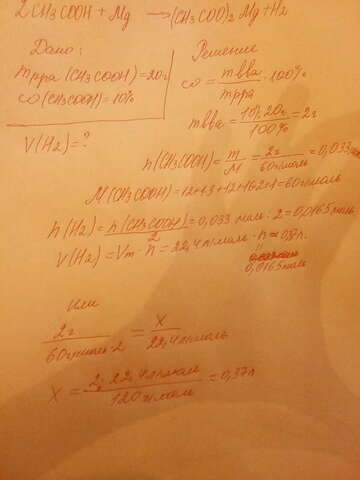 2CH3COOH + Mg → (CH3COO)2 Mg + H2
Дано:
mрра (CH3COOH) = 20г
ω (CH3COOH) = 10%
V(H2) = ?
Решение
ω = mвва / mрра · 100%
mвва = 10% · 20г / 100% = 2г
n(CH3COOH) = m / M = 2г / 60г/моль = 0,033 моль
M(CH3COOH) = 12+1·3+12+16·2+1 = 60г/моль
n(H2) = n(CH3COOH) / 2 = 0,033 моль : 2 = 0,0165 моль
V(H2) = Vm · n = 22,4 л/моль · n ≈ 0,37л.
0,0165 моль
Или
2г / 60г/моль · 2 = X / 22,4 л/моль
X = 2г · 22,4 л/моль / 120 г/моль = 0,37л